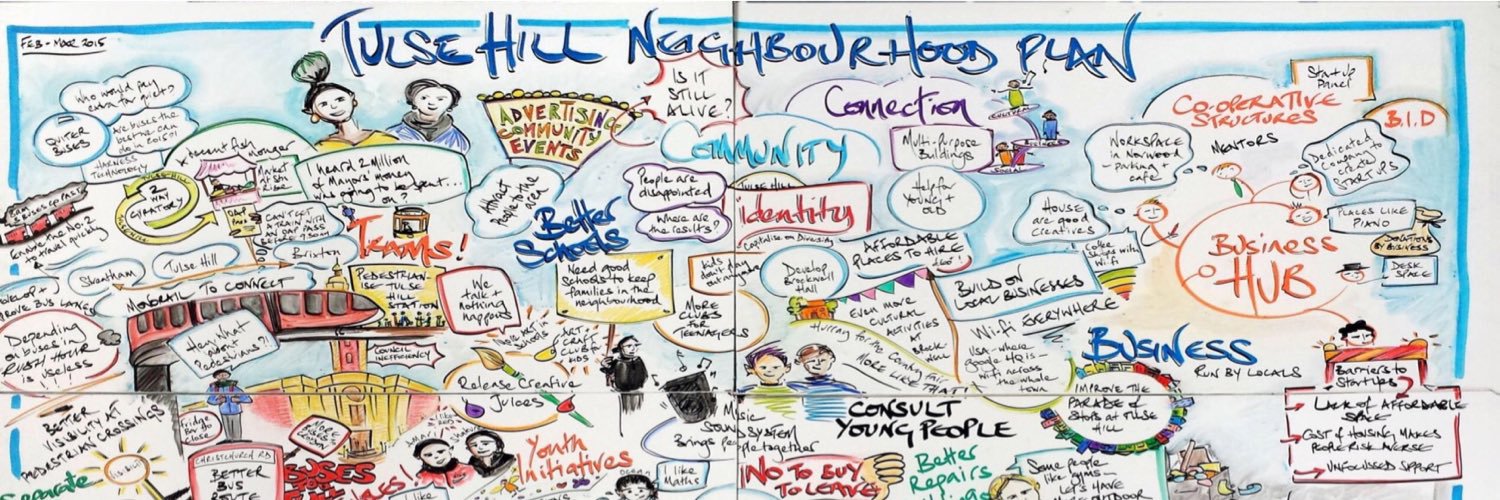 FEB - MAR 2015
TULSE HILL NEIGHBOURHOOD PLAN
Who would pay
extra for quiet?
QUITER
BUSES
Are buses the
best we can
do in 2015?
HARNESS
TECHNOLOGY
A decent fish
Monger
2
WAY
GYRATORY
TULSE HILL
Market
I heard 2 Million
of Mayors' money
was going to be spent...
was going on?
ADVERTISING
COMMUNITY
EVENTS
IS IT
STILL
ALIVE?
Attract
People to the
area
COMMUNITY
People are
disappointed
Where are
the results?
Connection
Multi-Purpose
Buildings
SOCIAL
Help for
Young +
OLD
TULSE HILL
Identity
Capitalise on Diversity
START UP
Panel
CO-OPERATIVE
STRUCTURES
B.I.D
MENTORS
WORKSPACE
in Norwood
- parking +
cafe
Dedicated
Company to
create
START UPS
HOUSE
are good
creatives
Coffee
Shops with
Wifi
BUSINESS
HUB
PLACES LIKE
PIANO
DONATIONS
BY BUSINESS
DESK
SPACE
Enable the No. 2
to travel quickly
CAN'T GET
A TRAIN WITH
AN DAY PASS
BEFORE 9.30am
TRAMS!
Streatham
Tulse Hill
Brixton
MONORAIL TO CONNECT
PEDESTRIAN-
ISE TULSE
HILL
STATION
We
talk +
nothing
happens
Better
Schools
Need good
schools to keep
families in the
neighbourhood
MORE
CLUBS
FOR
TEENAGERS
Develop
Brockwell
Hall
AFFORDABLE
PLACES TO HIRE
EVEN
MORE
CULTURAL
ACTIVITIES
Hurray for the Country fair
MORE LIKE THAT!
BUILD ON
LOCAL BUSINESSES
Wifi EVERYWHERE
USA - where
google HQ is -
wifi across
the whole
town
BUSINESS
RUN BY LOCALS
Barriers to
Startups?
LACK OF AFFORDABLE
SPACE
COST OF HOUSING MAKES
PEOPLE RISK AVERSE
UNFOCUSED SUPPORT
Depending
on buses in
RUSH HOUR
is useless!
Hey What
about
Pedestrians?!
COUNCIL
INEFFICIENCY
ART +
CRAFT
CLUB for
KIDS
Release Creative
Juices
BETTER
VISIBILITY AT
PEDESTRIAN CROSSINGS
Separate
Fridge
bought
close
CHRISTCHURCH RD
BETTER
BUS
ROUTE
BUSES
Youth
Initiatives
Music
SOUND SYSTEM
Brings people together
I like
Maths
CONSULT
YOUNG PEOPLE
NO TO BUY
TO LEAVE
Better
Repairs
Some people
like gyms -
LET'S HAVE
IMPROVE THE
PARADE OF
SHOPS AT TULSE
HILL